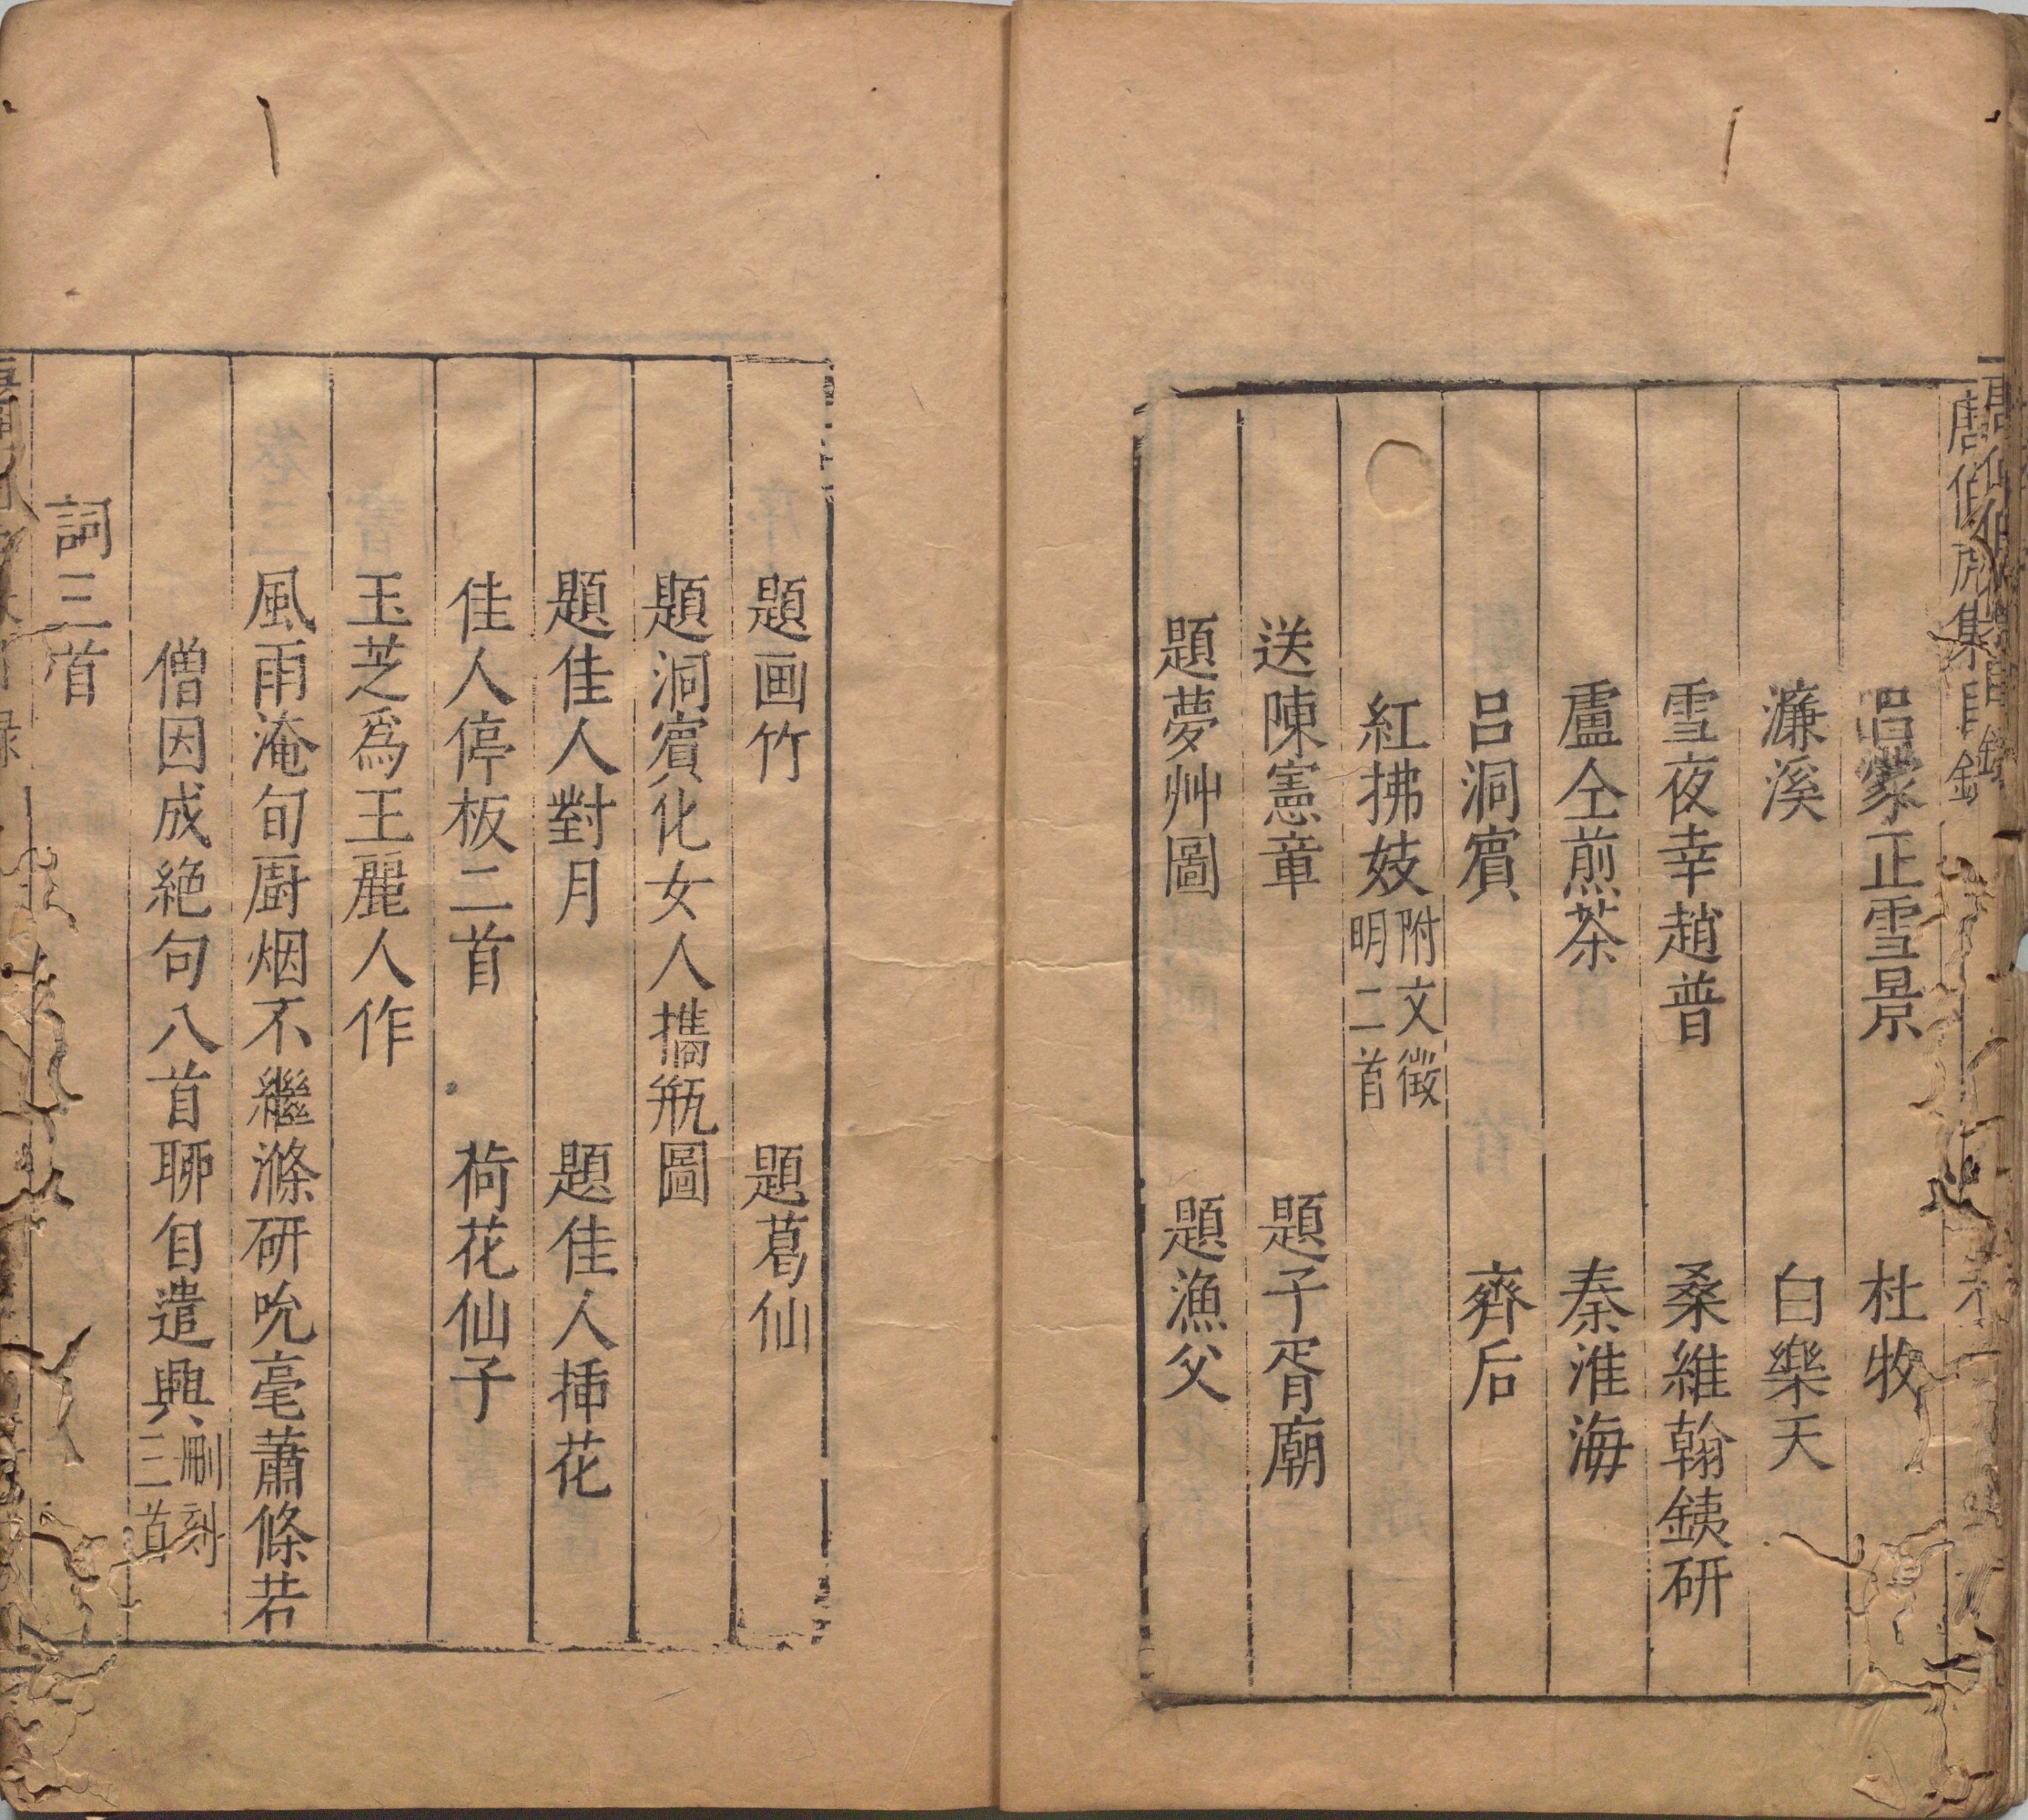 唐伯虎集目錄
呂蒙正雪景　杜牧
濂溪　白樂天
雪夜幸趙普　桑維翰鉄研
盧仝煎茶　秦淮海
呂洞賔　齊后
紅拂妓附文徵明二首
送陳憲章　題子胥廟
題夢艸圖　題漁父
題画竹　題葛仙
題洞賔化女人攜瓶圖
題佳人對月　題佳人揷花
佳人停板二首　荷花仙子
玉芝爲王麗人作
風雨淹旬厨烟不繼滌研吮毫蕭條若
僧因成絶句八首聊自遣興刪刻三首
詞三首